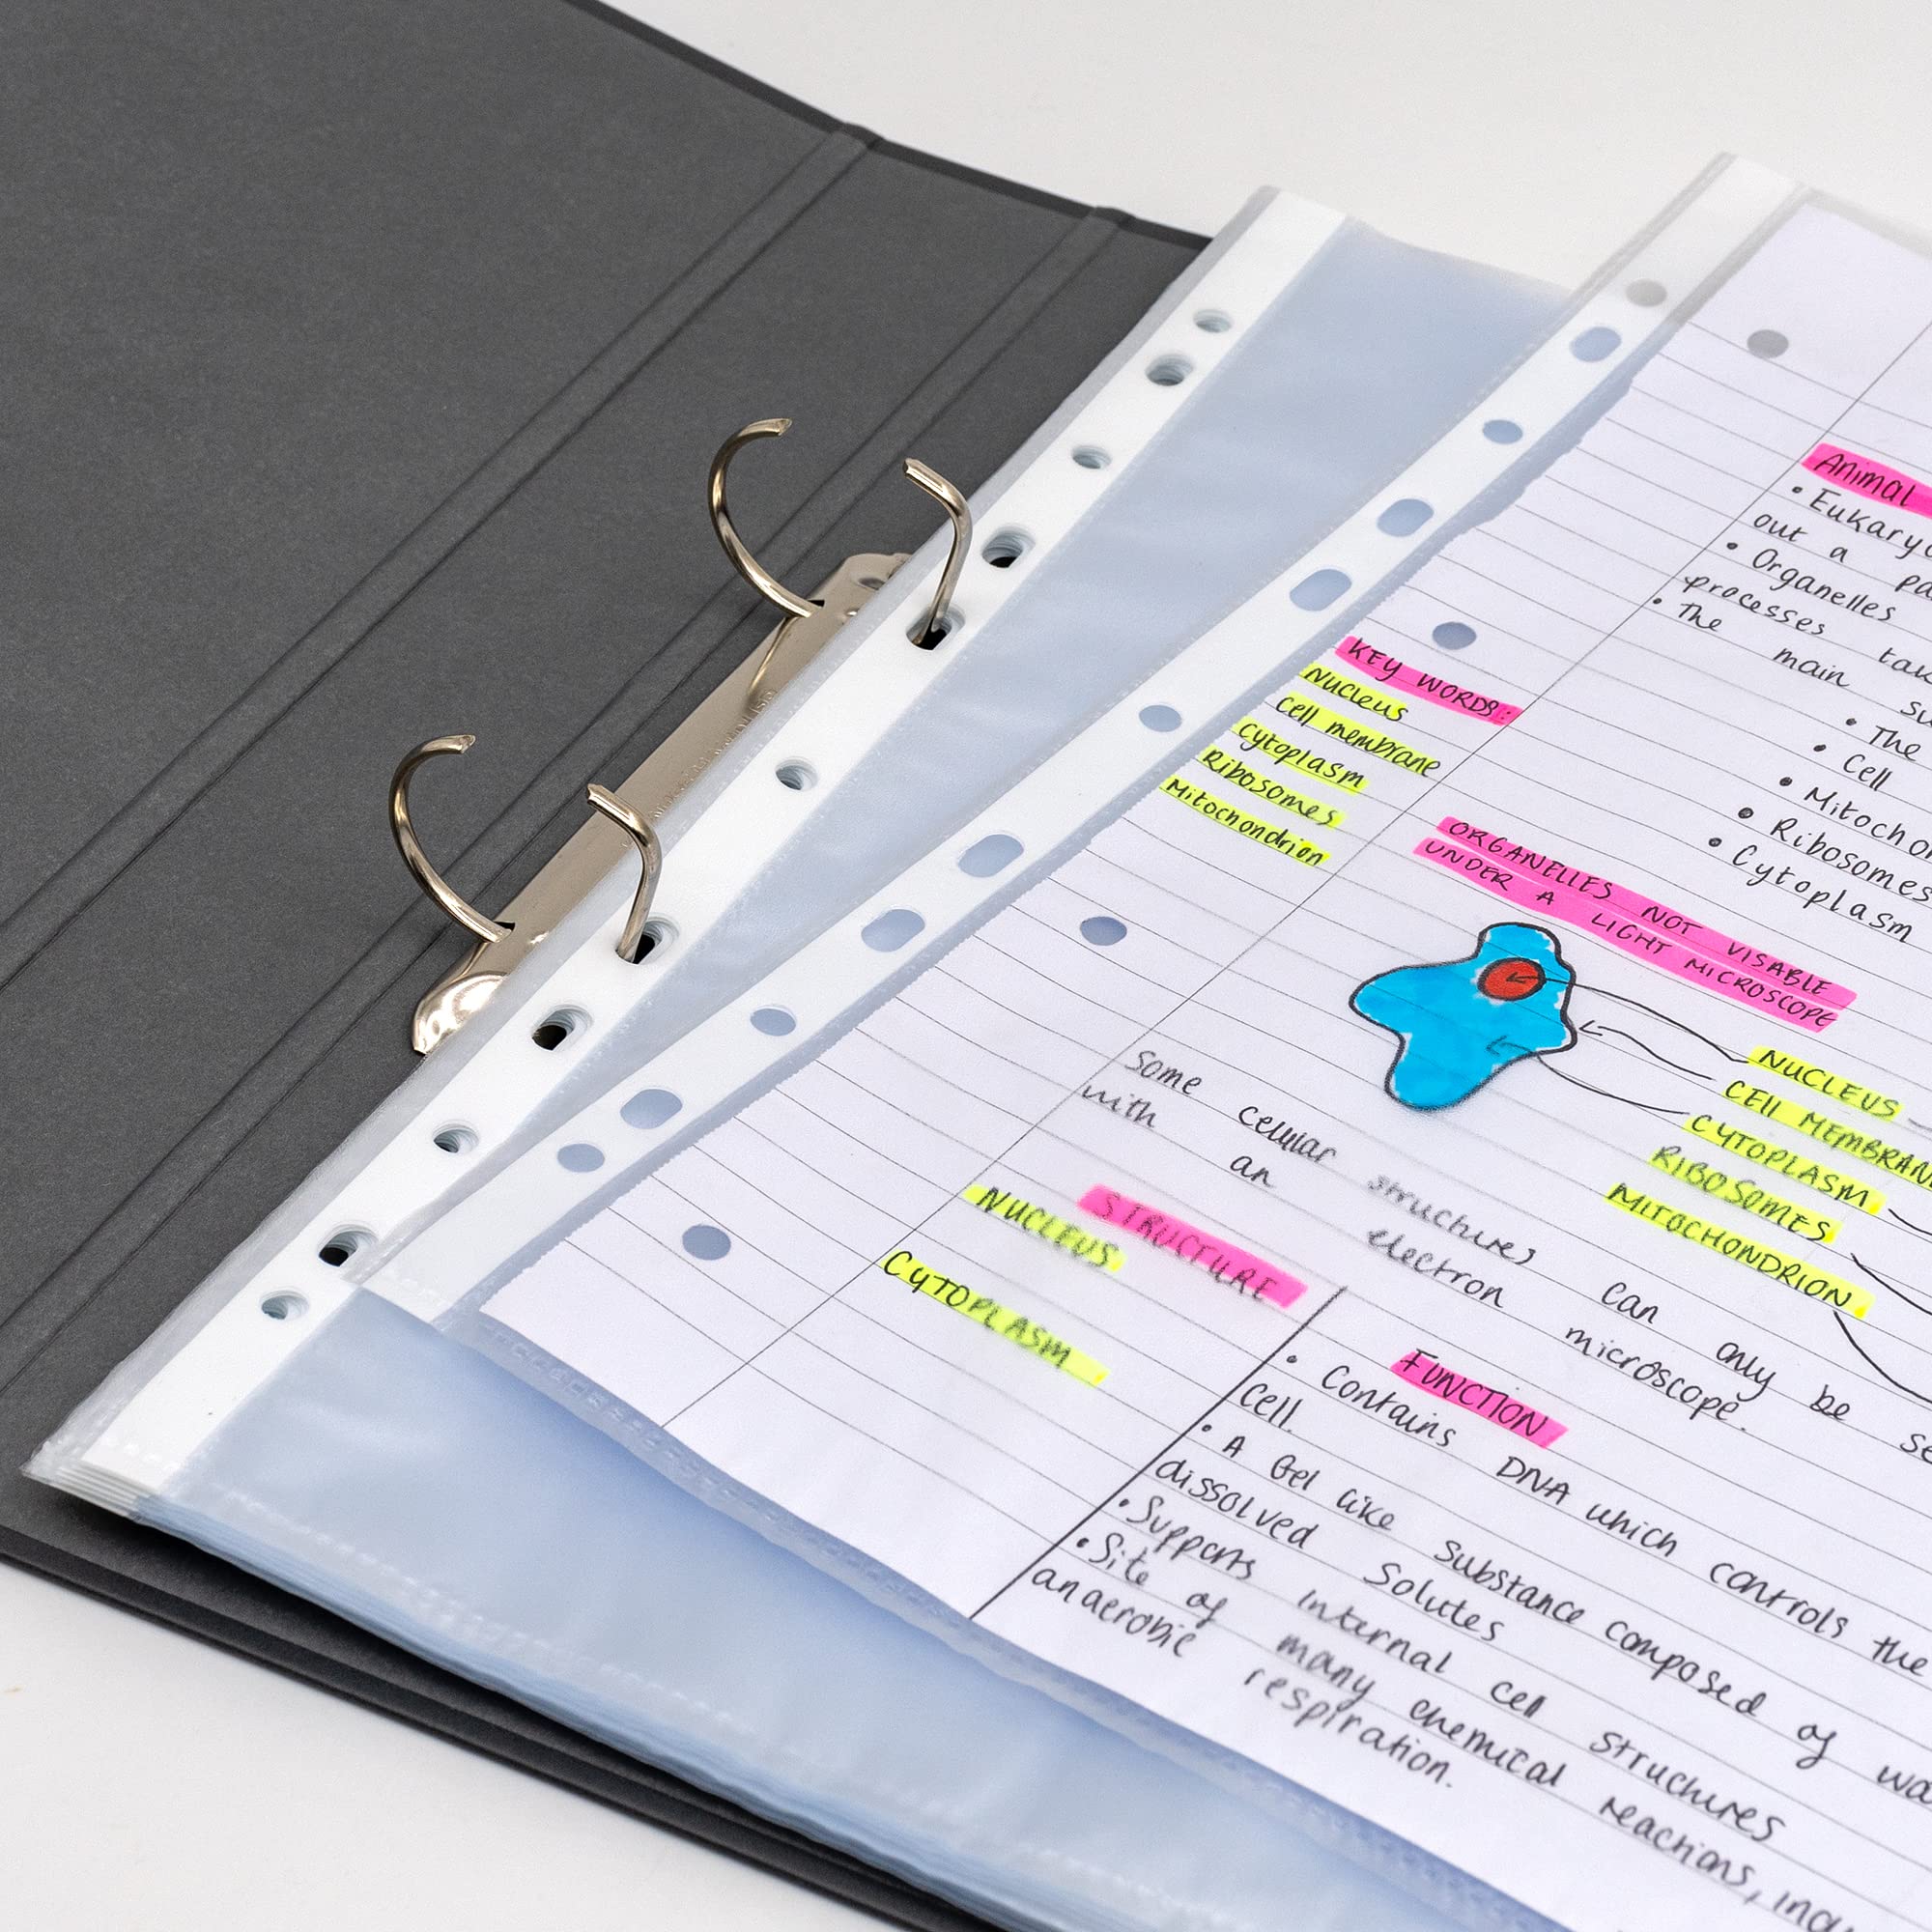 Animal
• Eukaryo
out a pa
• Organelles
processes tak
• The main su
• The
• Cell
• Mitochon
• Ribosomes
• Cytoplasm
KEY WORDS:
Nucleus
Cell membrane
Cytoplasm
Ribosomes
Mitochondrion
ORGANELLES NOT VISABLE
UNDER A LIGHT MICROSCOPE
NUCLEUS
CELL MEMBRAN
CYTOPLASM
RIBOSOMES
MITOCHONDRION
Some cellular structures can only be se
with an electron microscope.
STRUCTURE
FUNCTION
NUCLEUS
• Contains DNA which controls the
Cell.
CYTOPLASM
• A Gel like substance composed of wa
dissolved solutes
• Supports internal cell structures
• Site of many chemical reactions, incl
anaerobic respiration.